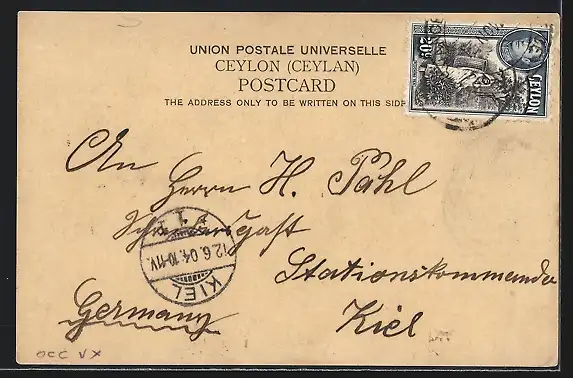 UNION POSTALE UNIVERSELLE
CEYLON (CEYLAN)
POSTCARD
THE ADDRESS ONLY TO BE WRITTEN ON THIS SIDE
CEYLON
20
An
Herrn H. Pahl
Stationskommando
Kiel
Germany
12.6.04.10-11V.
KIEL
OCC VX